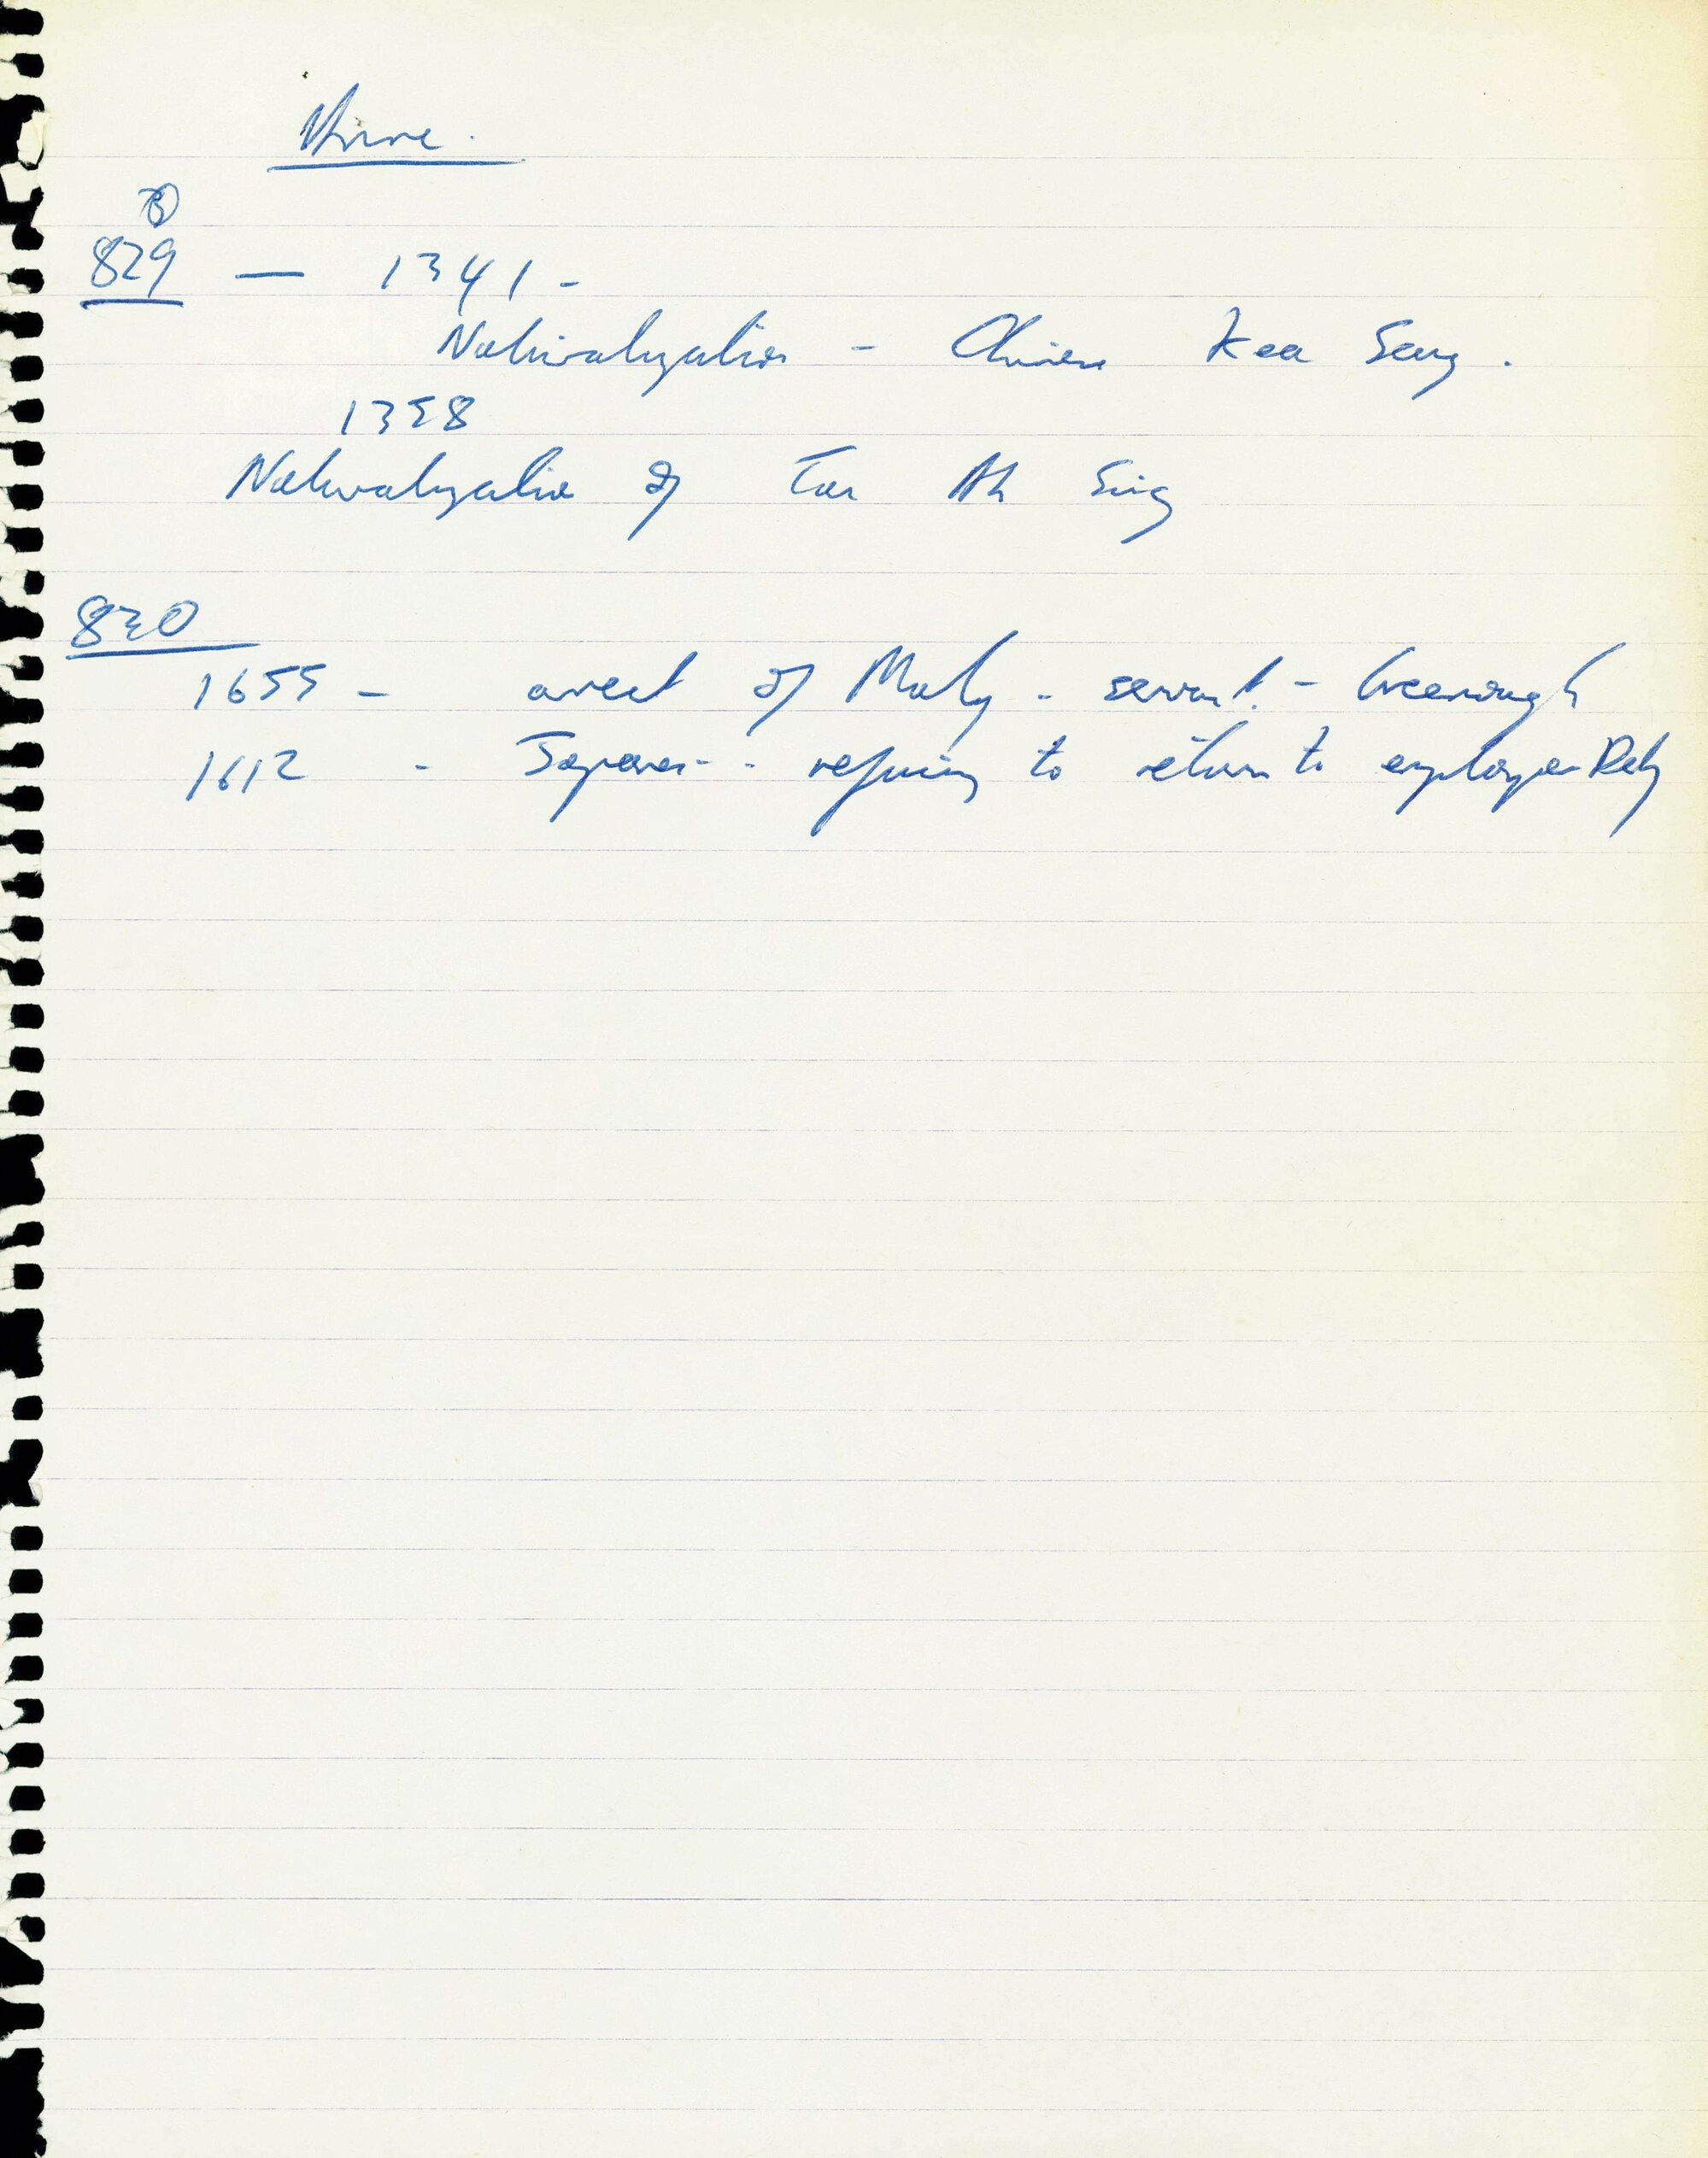 829 — 1341 -
Naturalyzation - Chinese Kee Seng.
1358
Naturalyzation of Tar Ah Sing
830
1655 - arrest of Maly - servant - Greenough
1612 - Japanese - refusing to return to employer